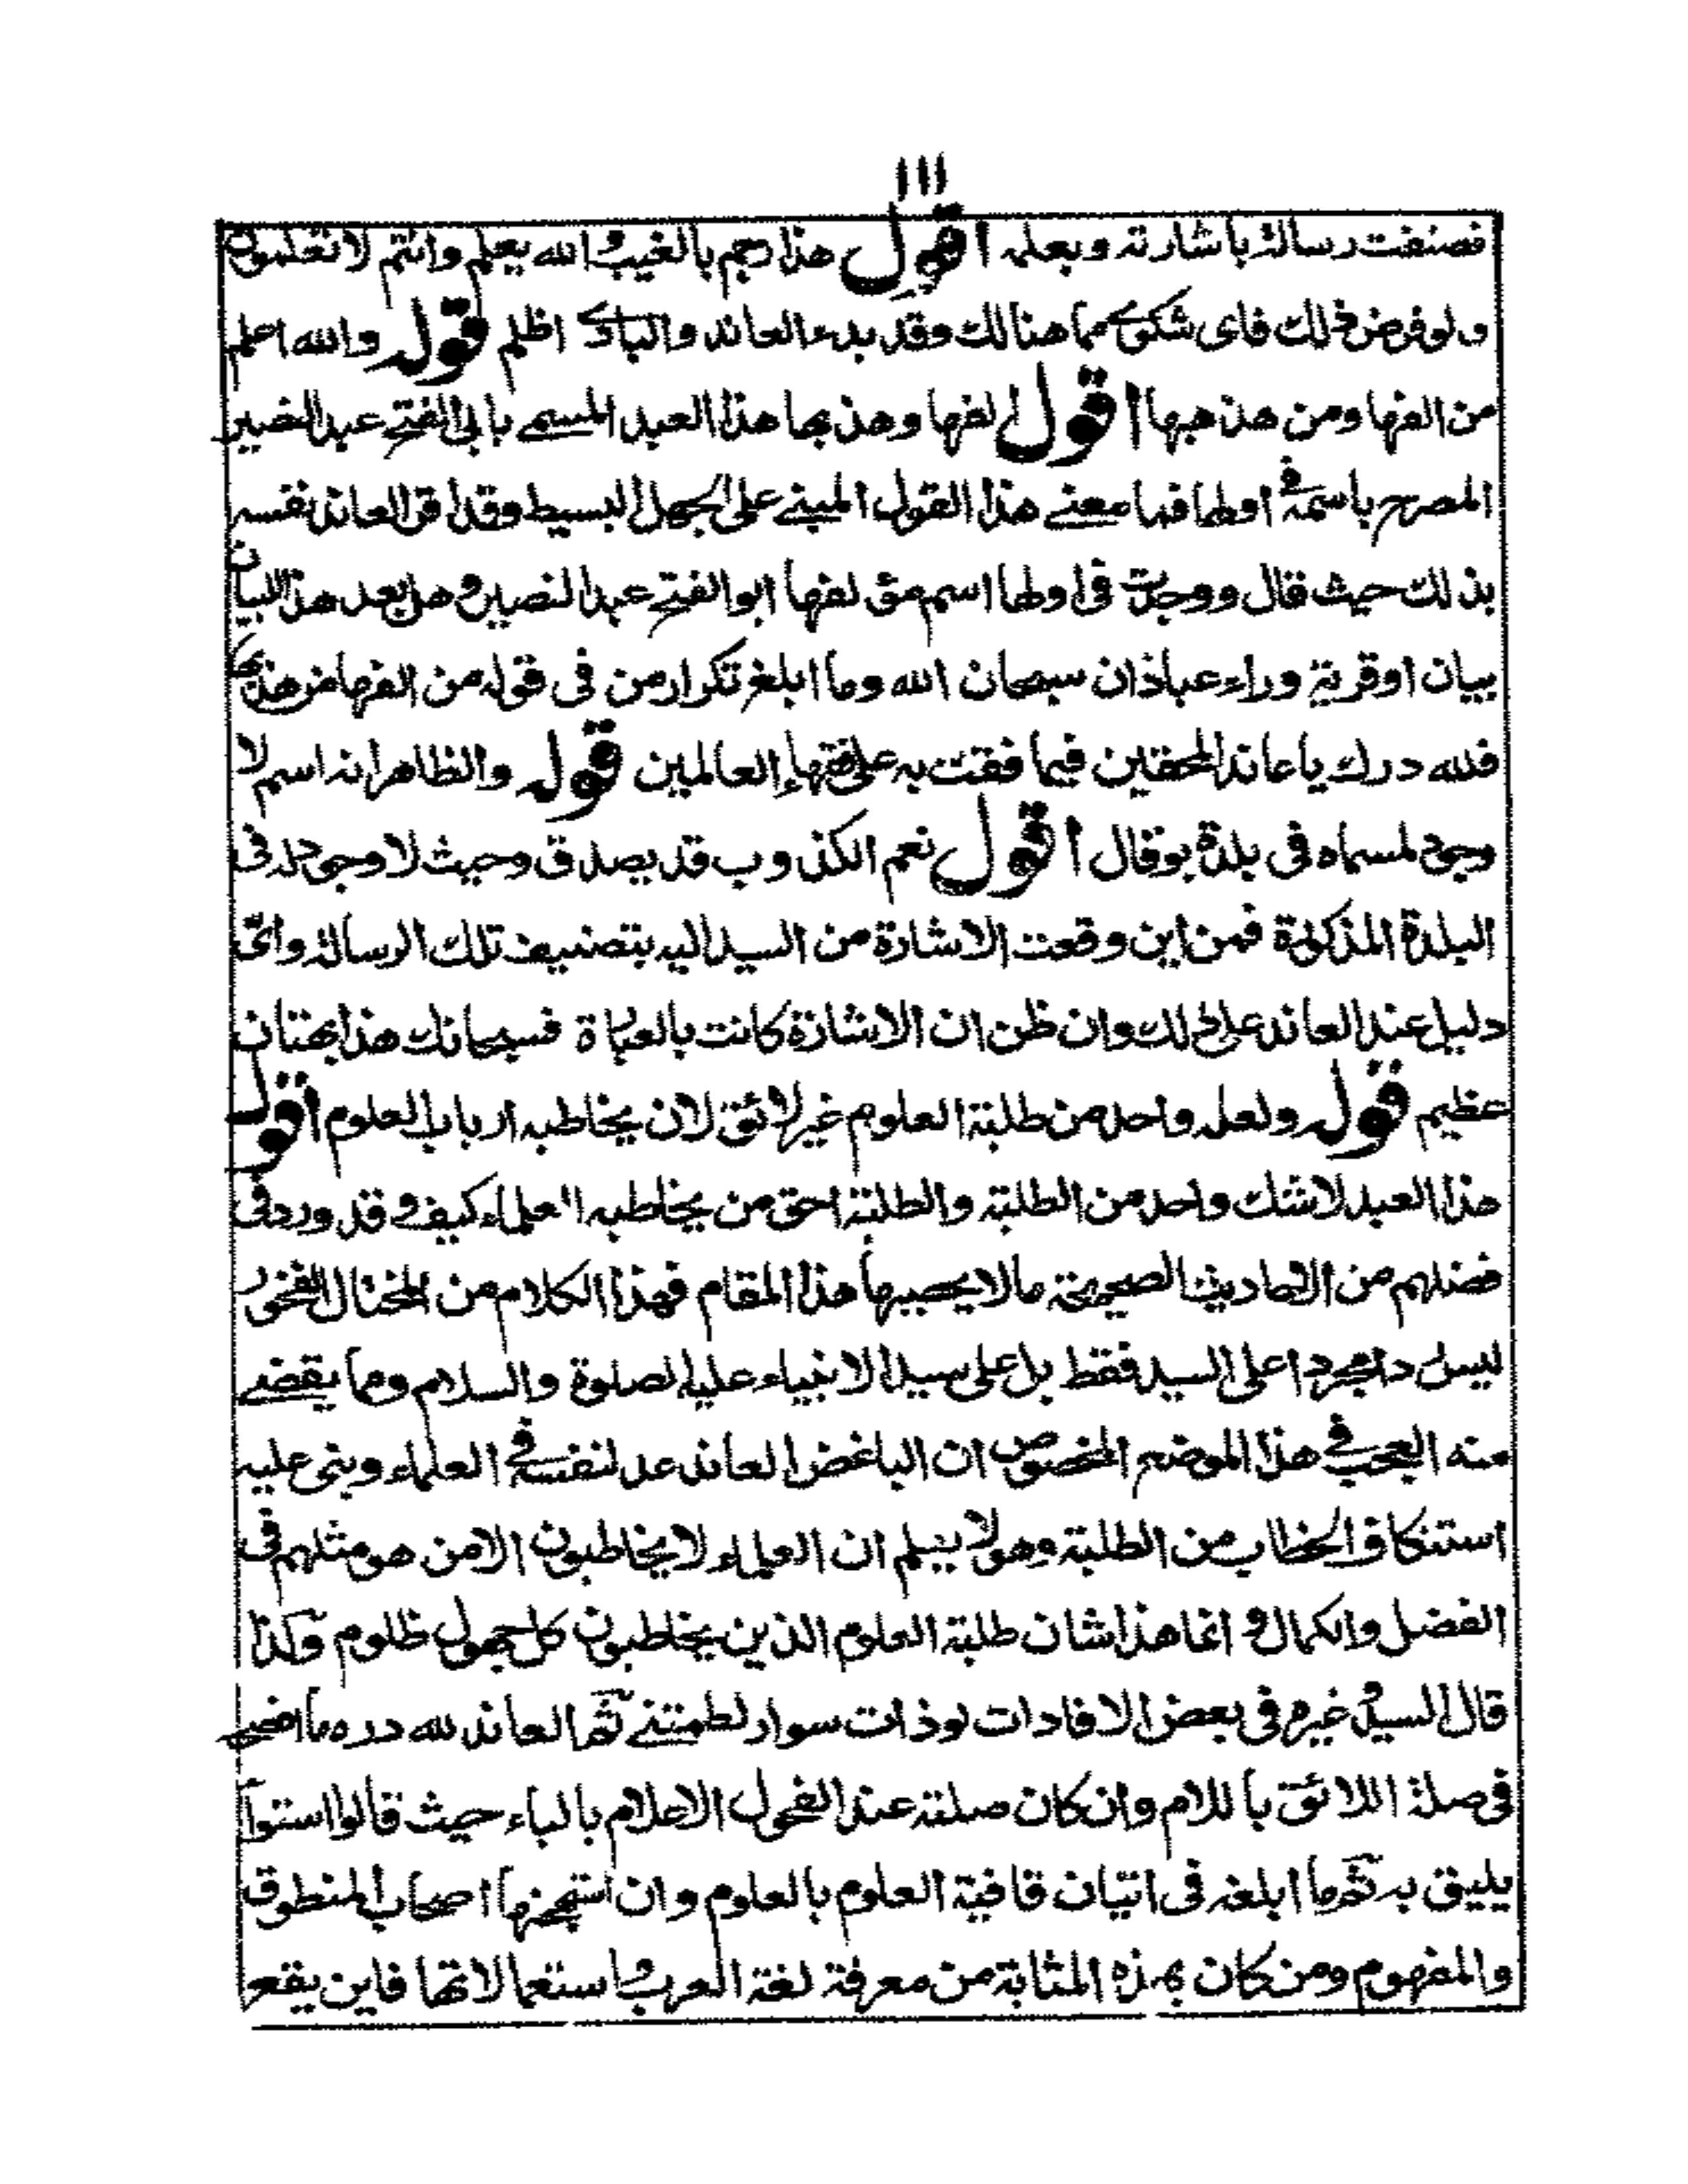 ١١١
فصنفت رسالة باشارته وبعلمه اقول هذا رجم بالغيب والله يعلم وانتم لا تعلمون
ولو فرض ذلك فاى شكوى مما هنالك وقد بدء العاند والبادى اظلم قوله والله اعلم
من الفها ومن هذبها اقول الفها وهذبها هذا العبد المسمى بابى الفتح عبد النصير
المصرح باسمه فى اولها فما معنى هذا القول المبنى على الجهل البسيط وقد اقر العاند نفسه
بذلك حيث قال ووجدت فى اولها اسم مؤلفها ابو الفتح عبد النصير وهل بعد هذا البيان
بيان او قرية وراء عبادان سبحان الله وما ابلغ تكرار من فى قوله من الفها من هذبها
فلله درك يا عاند المحققين فيما فقت به على فقهاء العالمين قوله والظاهر انه اسم لا
وجود لمسماه فى بلدة بوفال اقول نعم الكذوب قد يصدق وحيث لا وجود له فى
البلدة المذكورة فمن اين وقعت الاشارة من السيد اليه بتصنيف تلك الرسالة واى
دليل عند العاند على ذلك وان ظن ان الاشارة كانت بالعبارة فسبحانك هذا بهتان
عظيم قوله ولعله واحد من طلبة العلوم غير لائق لان يخاطبه ارباب العلوم اقول
هذا العبد لا شك واحد من الطلبة والطلبة احق من يخاطبه العلماء كيف وقد ورد فى
فضلهم من الاحاديث الصحيحة ما لا يحصيها هذا المقام فهذا الكلام من المختال الفخور
ليس ردا مجردا على السيد فقط بل على سيد الانبياء عليه الصلوة والسلام ومما يقضى
منه العجب فى هذا الموضع المخصوص ان الباغض العاند عد لنفسه فى العلماء وبنى عليه
استنكاف الخطاب من الطلبة وهو لا يعلم ان العلماء لا يخاطبون الا من هو مثلهم فى
الفضل والكمال وانما هذا شان طلبة العلوم الذين يخاطبون كل جهول ظلوم وكذا
قال السيد وغيره فى بعض الافادات لو ذات سوار لطمتنى ثم العاند لله دره ما افصح
فى صلة اللائق باللام وان كان صلته عند الفحول الاعلام بالباء حيث قالوا استوا
يليق به ثم ما ابلغه فى اتيان قافية العلوم بالعلوم وان استهجنها اصحاب المنطوق
والمفهوم ومن كان بهذه المثابة من معرفة لغة العرب واستعمالاتها فاين يقع